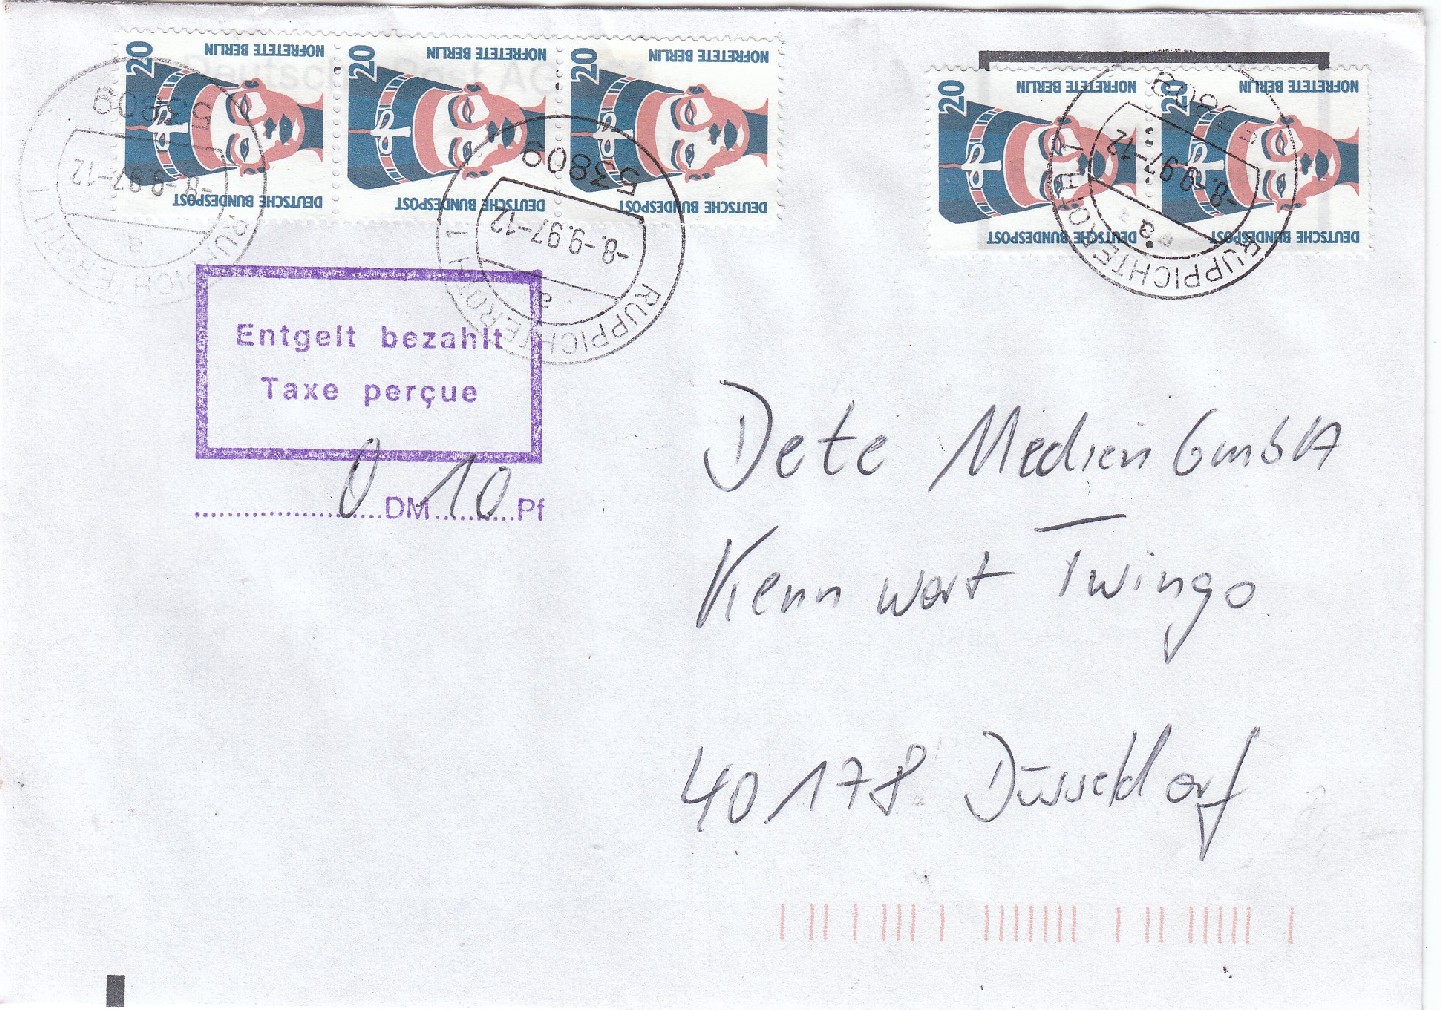 20 NOFRETETE BERLIN DEUTSCHE BUNDESPOST
20 NOFRETETE BERLIN DEUTSCHE BUNDESPOST
20 NOFRETETE BERLIN DEUTSCHE BUNDESPOST
20 NOFRETETE BERLIN DEUTSCHE BUNDESPOST
20 NOFRETETE BERLIN DEUTSCHE BUNDESPOST
Deutsche Post AG
53809
-8.-9.97-12
a
RUPPICHTEROTH 1
53809
-8.-9.97-12
a
RUPPICHTEROTH 1
-8.-9.97-12
a
RUPPICHTEROTH 1
Entgelt bezahlt
Taxe perçue
0 DM 10 Pf
Dete Medien GmbH
Kennwort Twingo
40178 Düsseldorf